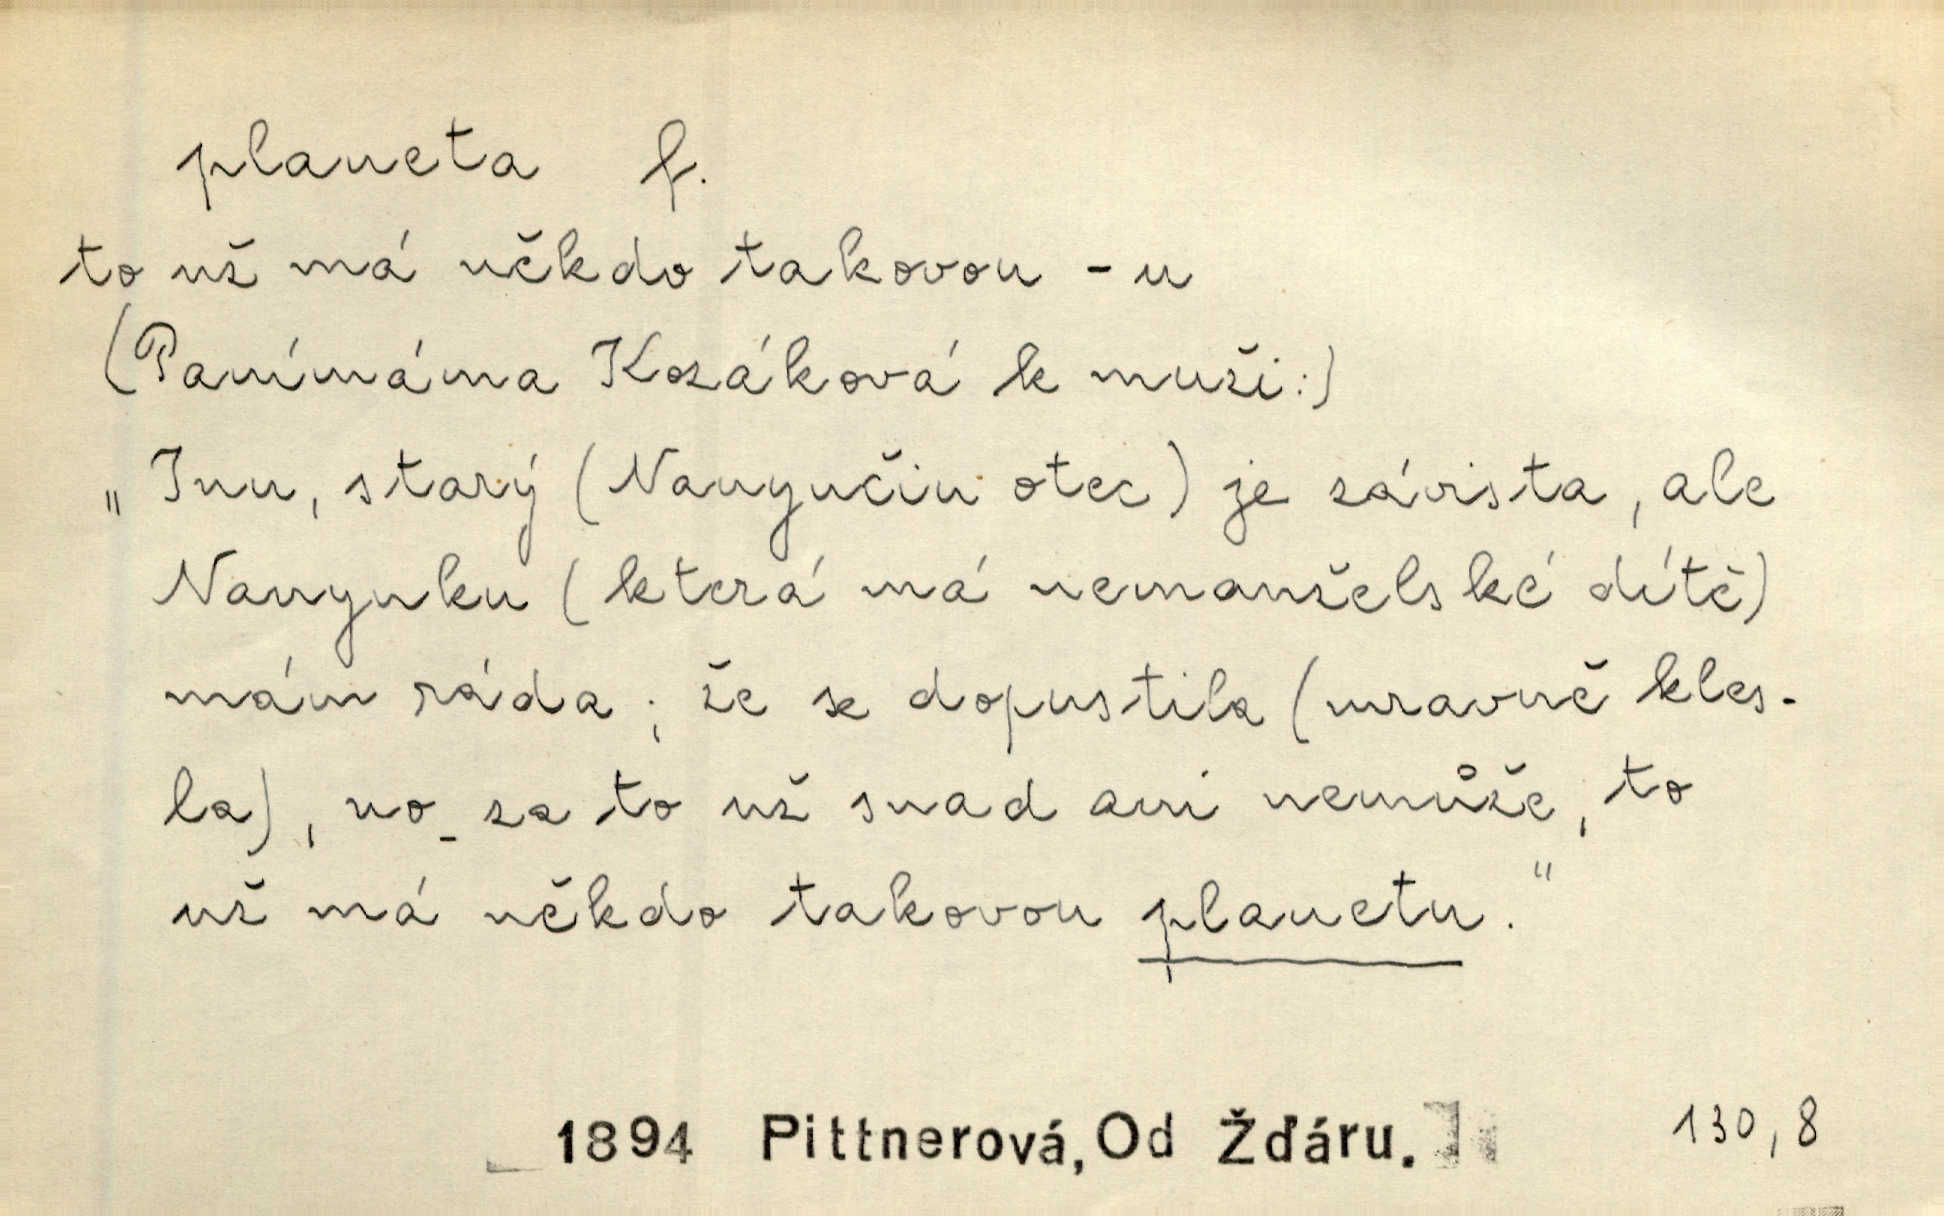 planeta f.
to už má někdo takovou -u
(Panímáma Kozáková k muži:)
„Inu, starý (Nanynčin otec) je závista, ale
Nanynku (která má nemanželské dítě)
mám ráda; že se dopustila (mravně kles-
la), no_ za to už snad ani nemůže, to
už má někdo takovou planetu."
1894 Pittnerová, Od Žďáru.
130,8